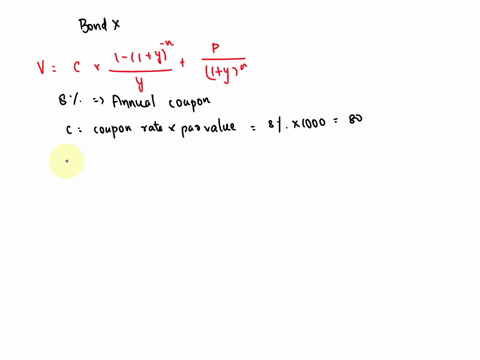 Bond X
V = C × 1-(1+y)^-n / y + P / (1+y)^n
8% => Annual coupon
C = coupon rate × par value = 8% × 1000 = 80